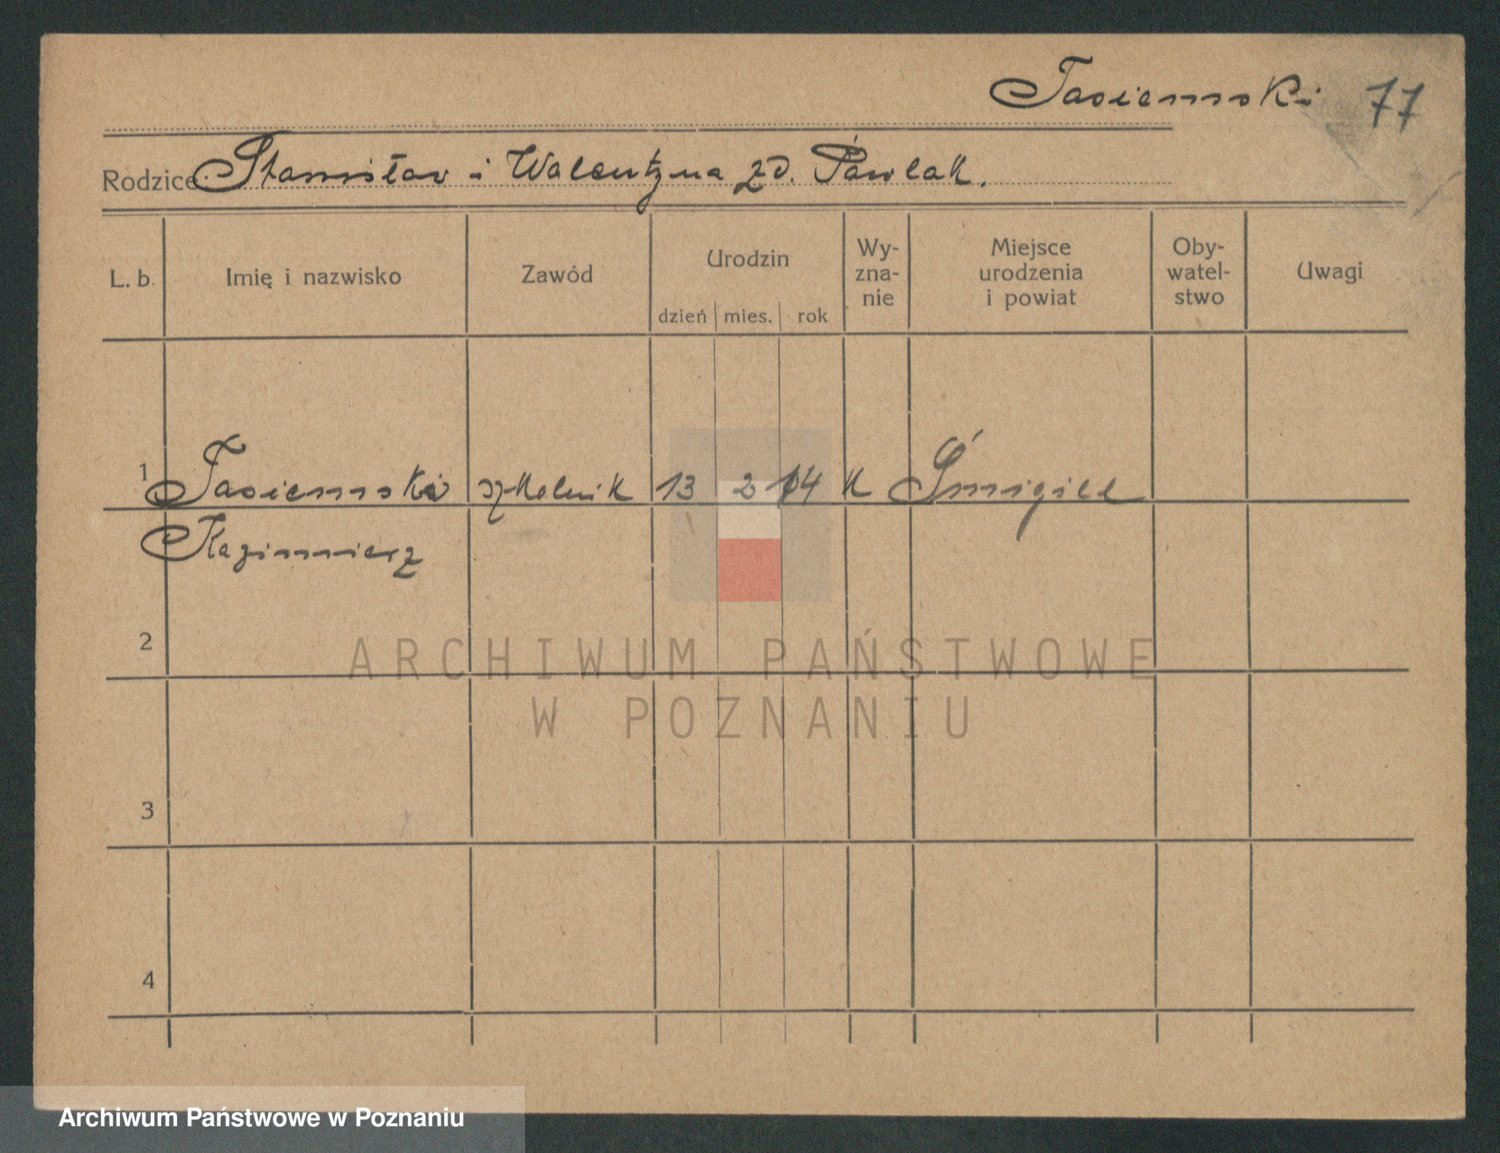 Tasiemski 77
Rodzice Stanisław i Walentyna zd. Pawlak.
L. b. Imię i nazwisko Zawód Urodzin dzień mies. rok Wy-zna-nie Miejsce urodzenia i powiat Oby-watel-stwo Uwagi
1 Tasiemski szkolnik 13 2 14 K Śmigiel
Kazimierz
2
ARCHIWUM PAŃSTWOWE
W POZNANIU
3
4
Archiwum Państwowe w Poznaniu